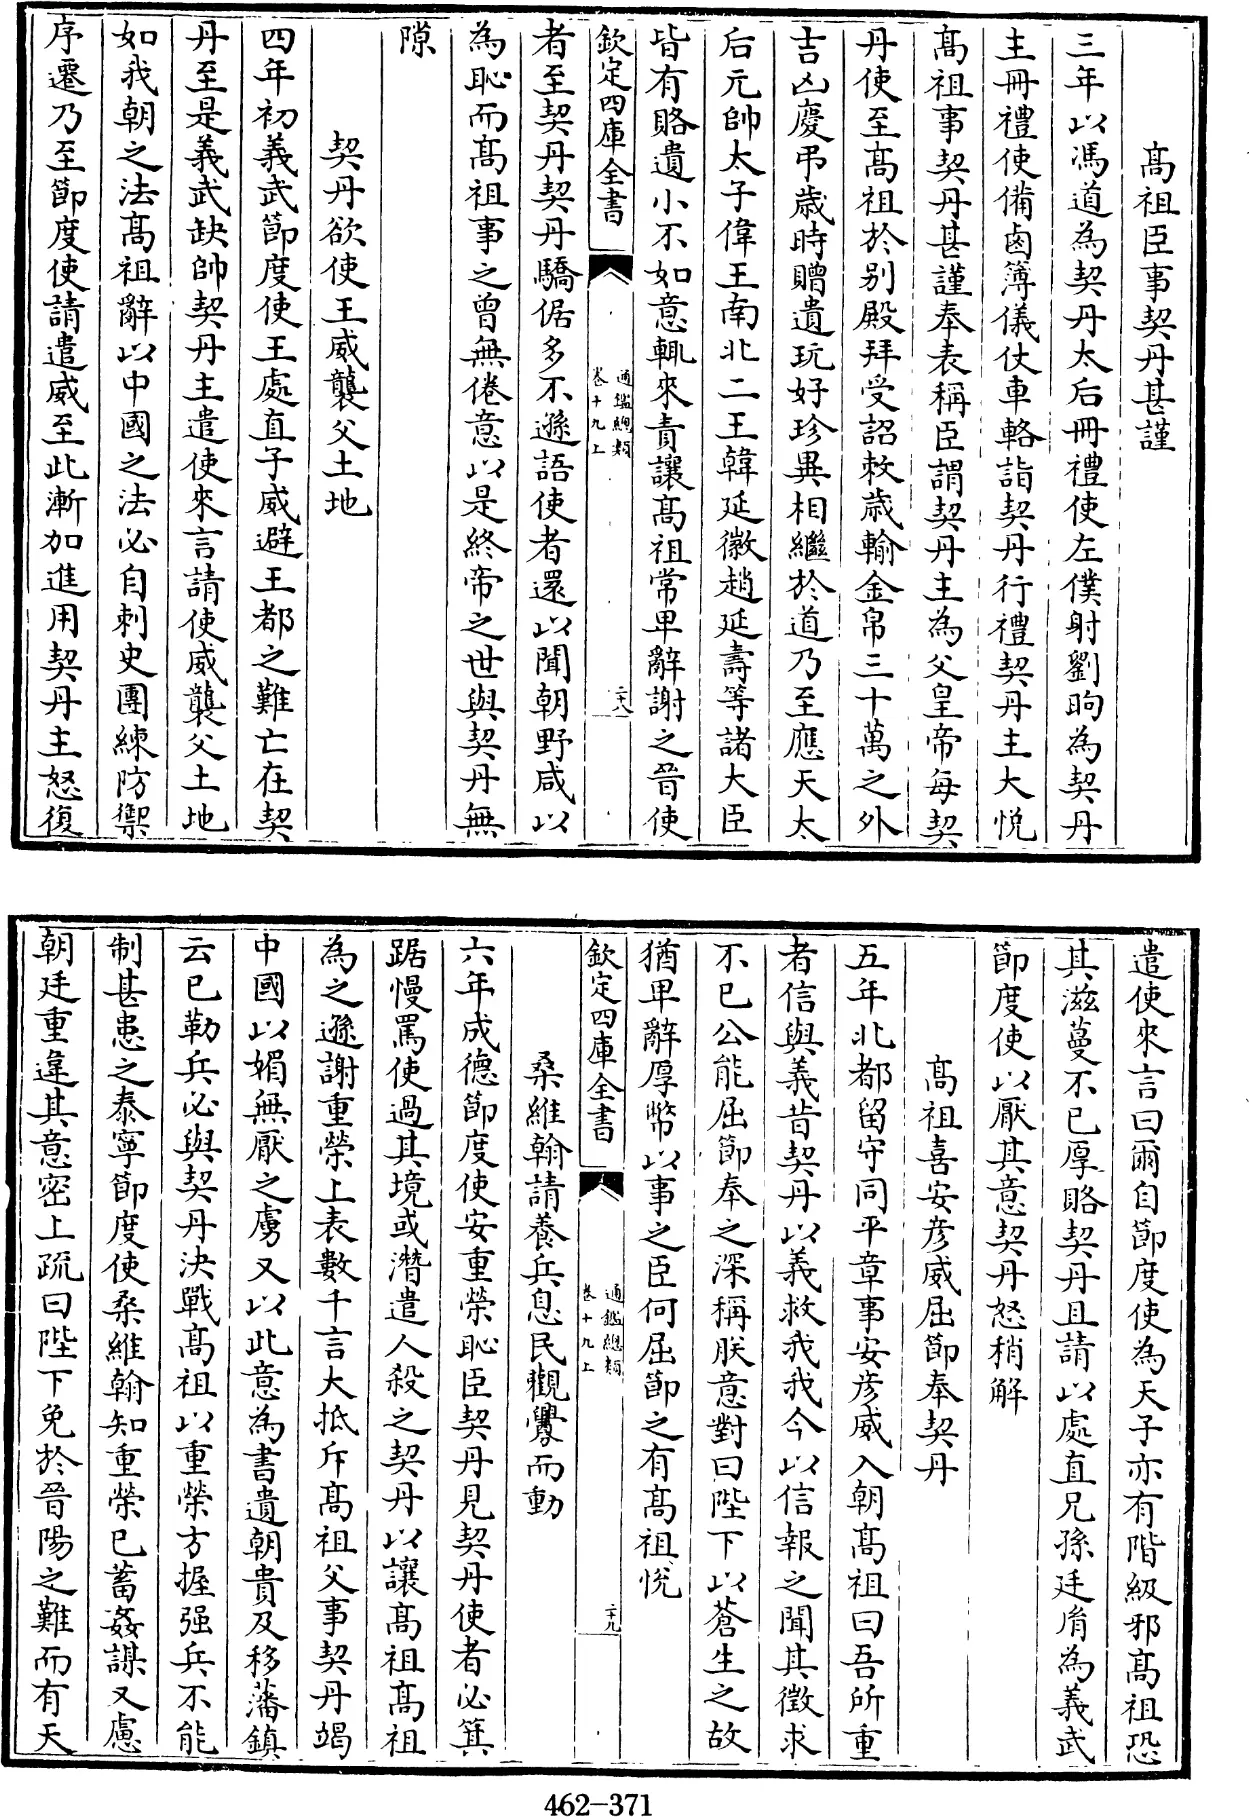 髙祖臣事契丹甚謹
三年以馮道為契丹太后冊禮使左僕射劉昫為契丹
主冊禮使備鹵簿儀仗車輅詣契丹行禮契丹主大悅
髙祖事契丹甚謹奉表稱臣謂契丹主為父皇帝每契
丹使至髙祖於别殿拜受詔敕歲輸金帛三十萬之外
吉凶慶弔歳時贈遺玩好珍異相繼於道乃至應天太
后元帥太子偉王南北二王韓延徽趙延壽等諸大臣
皆有賂遺小不如意輒來責讓髙祖常卑辭謝之晉使
欽定四庫全書
通鑑總類
卷十九上
二十八
者至契丹契丹驕倨多不遜語使者還以聞朝野咸以
為恥而髙祖事之曾無倦意以是終帝之世與契丹無
隙
契丹欲使王威襲父土地
四年初義武節度使王處直子威避王都之難亡在契
丹至是義武缺帥契丹主遣使來言請使威襲父土地
如我朝之法髙祖辭以中國之法必自刺史團練防禦
序遷乃至節度使請遣威至此漸加進用契丹主怒復
遣使來言曰爾自節度使為天子亦有階級邪髙祖恐
其滋蔓不已厚賂契丹且請以處直兄孫廷胤為義武
節度使以厭其意契丹怒稍解
髙祖喜安彦威屈節奉契丹
五年北都留守同平章事安彦威入朝髙祖曰吾所重
者信與義昔契丹以義救我我今以信報之聞其徵求
不已公能屈節奉之深稱朕意對曰陛下以蒼生之故
猶卑辭厚幣以事之臣何屈節之有髙祖悅
欽定四庫全書
通鑑總類
卷十九上
二十九
桑維翰請養兵息民觀釁而動
六年成德節度使安重榮恥臣契丹見契丹使者必箕
踞慢罵使過其境或潛遣人殺之契丹以讓髙祖髙祖
為之遜謝重榮上表數千言大抵斥髙祖父事契丹竭
中國以媚無厭之虜又以此意為書遺朝貴及移藩鎮
云已勒兵必與契丹決戰髙祖以重榮方握强兵不能
制甚患之泰寧節度使桑維翰知重榮已蓄姦謀又慮
朝廷重違其意密上疏曰陛下免於晉陽之難而有天
462-371